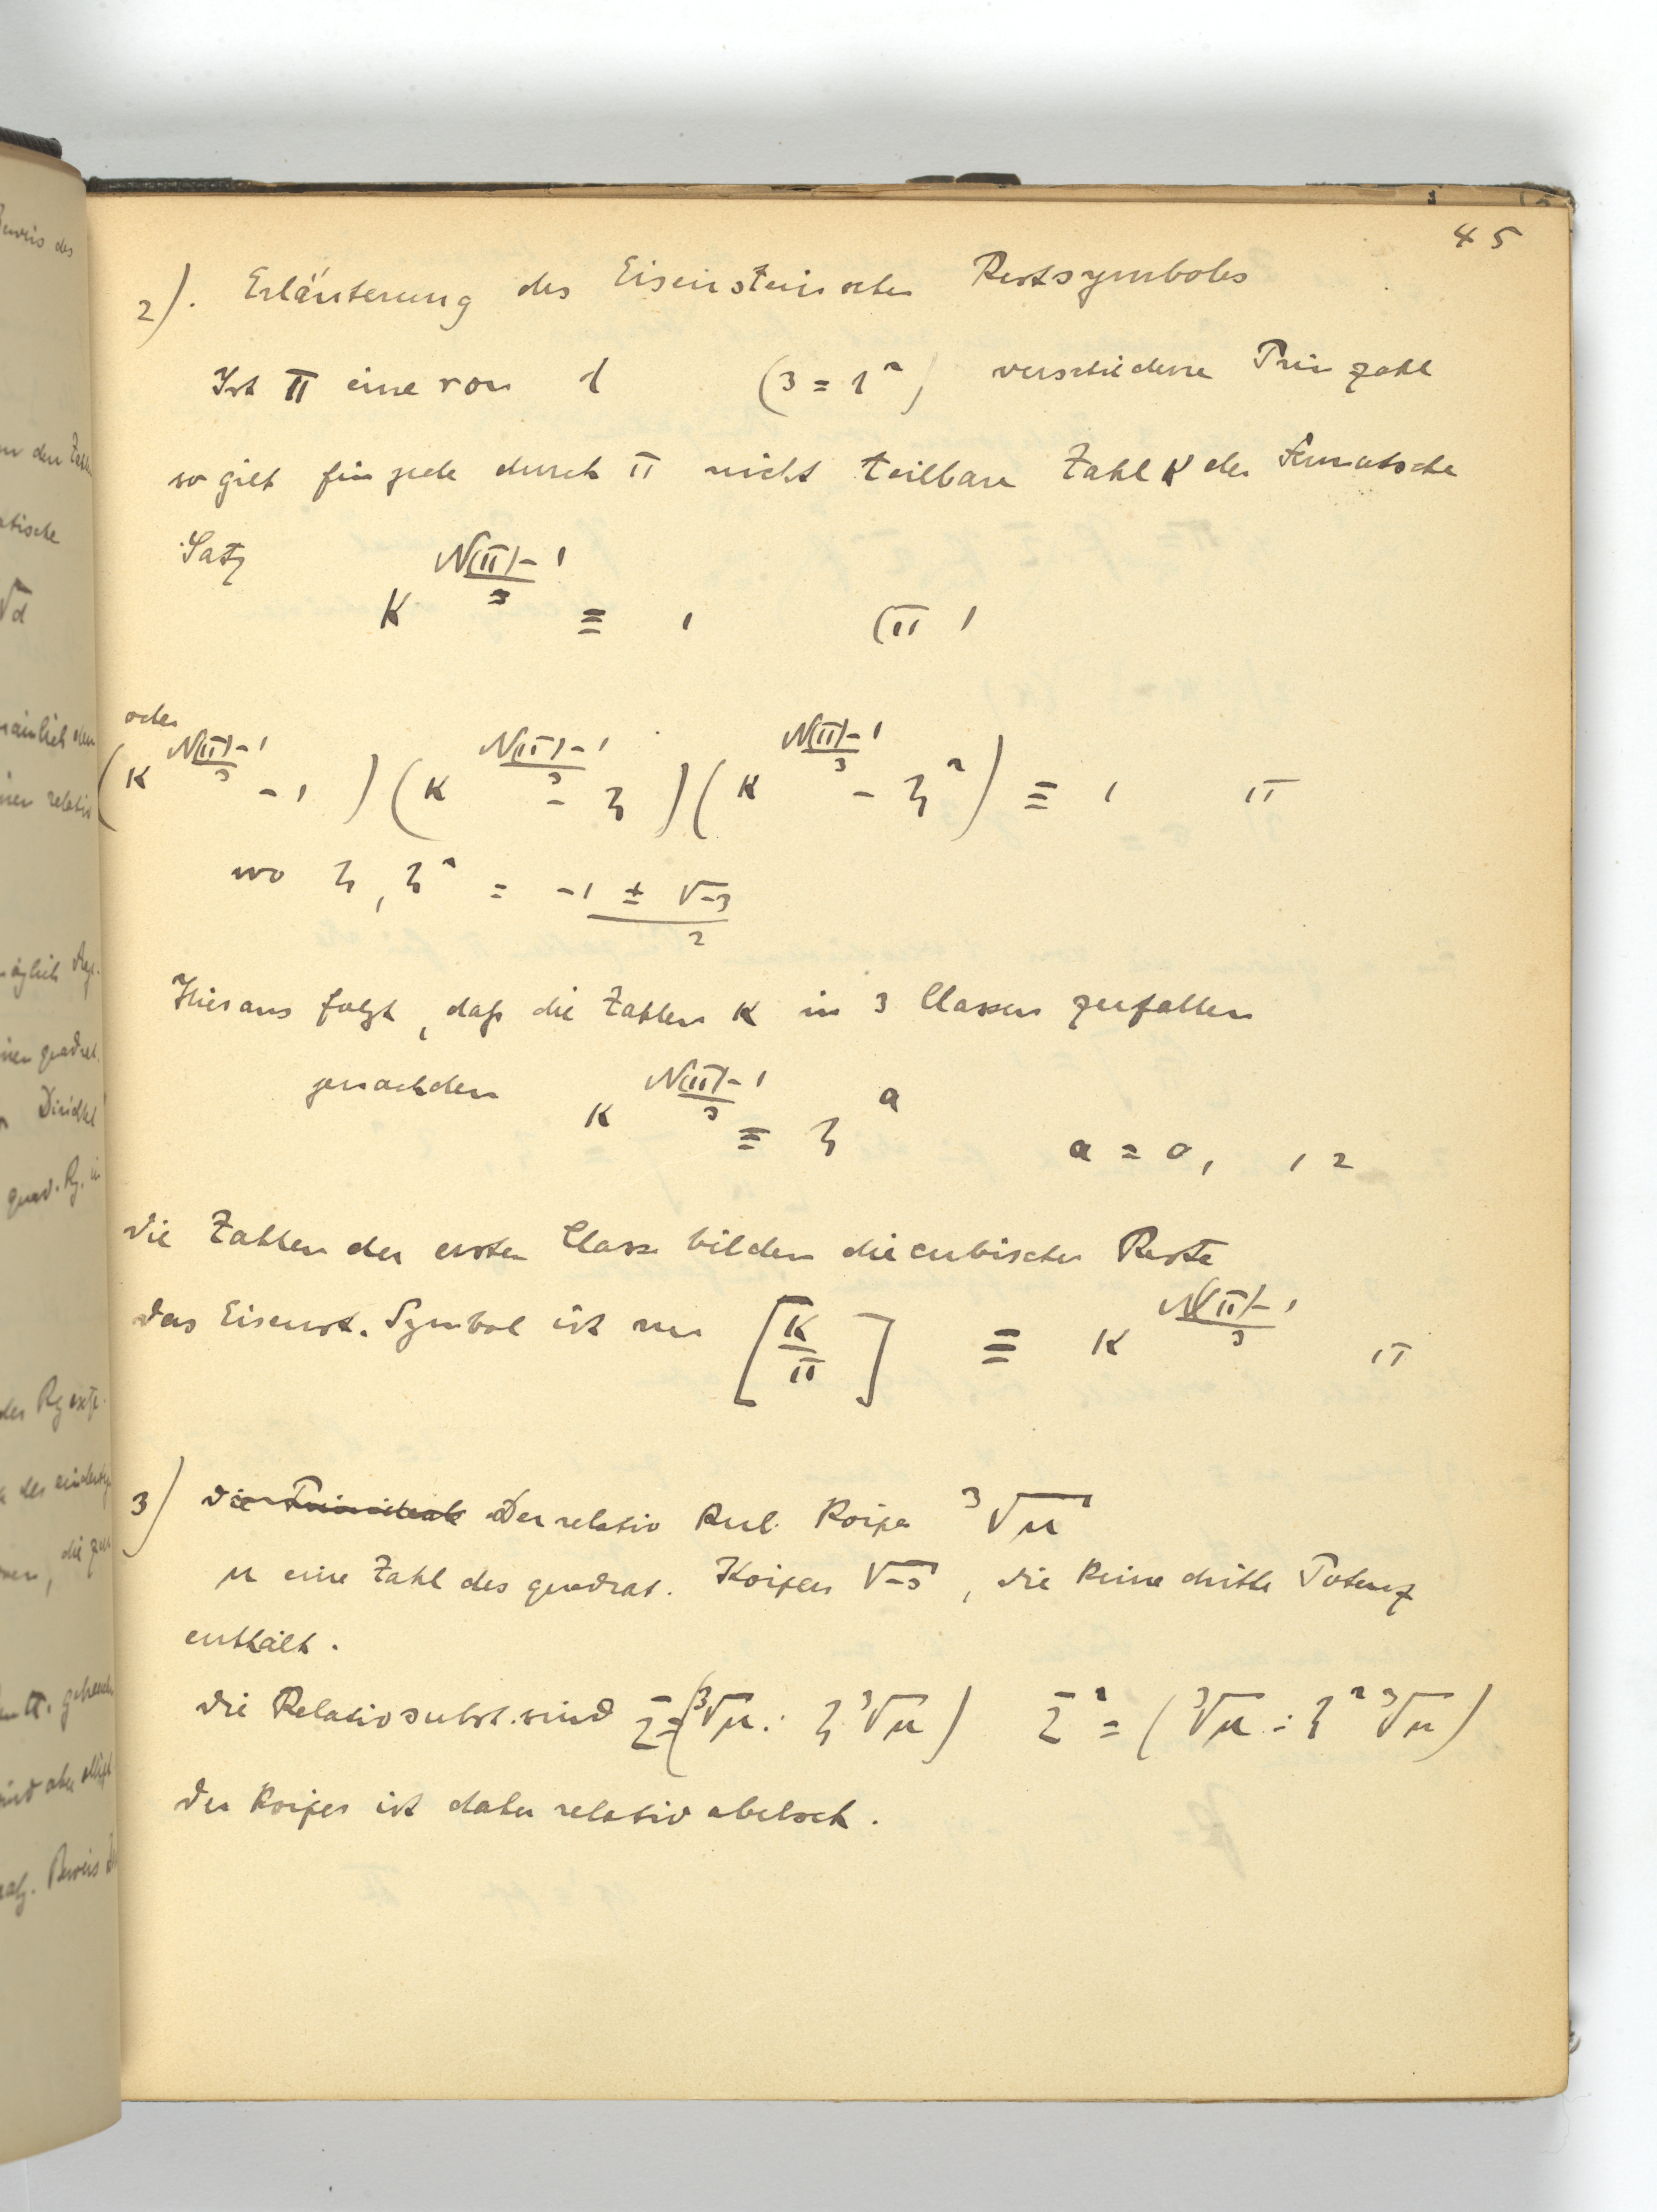 45
2). Erläuterung des Eisensteinschen Restsymboles
Ist π eine von l (3 = l²) verschiedene Primzahl
so gilt für jede durch π nicht teilbare Zahl κ der Fermatsche
Satz
κ^{(N(π)-1)/3} ≡ 1 (π)
oder
(κ^{(N(π)-1)/3} - 1)(κ^{(N(π)-1)/3} - ζ)(κ^{(N(π)-1)/3} - ζ²) ≡ 1 π
wo ζ, ζ² = (-1 ± √-3)/2
Hieraus folgt, daß die Zahlen κ in 3 Classen zerfallen
jenachdem κ^{(N(π)-1)/3} ≡ ζ^a a = 0, 1 2
Die Zahlen der ersten Classe bilden die cubischen Reste
Das Eisenst. Symbol ist nun [κ/π] ≡ κ^{(N(π)-1)/3} π
3) Die Primideale Der relativ kub. Körper ³√μ
μ eine Zahl des quadrat. Körpers √-3, die keine dritte Potenz
enthält.
Die Relativsubst. sind Σ = (³√μ : ζ ³√μ) Σ² = (³√μ : ζ² ³√μ)
Der Körper ist daher relativ abelsch.